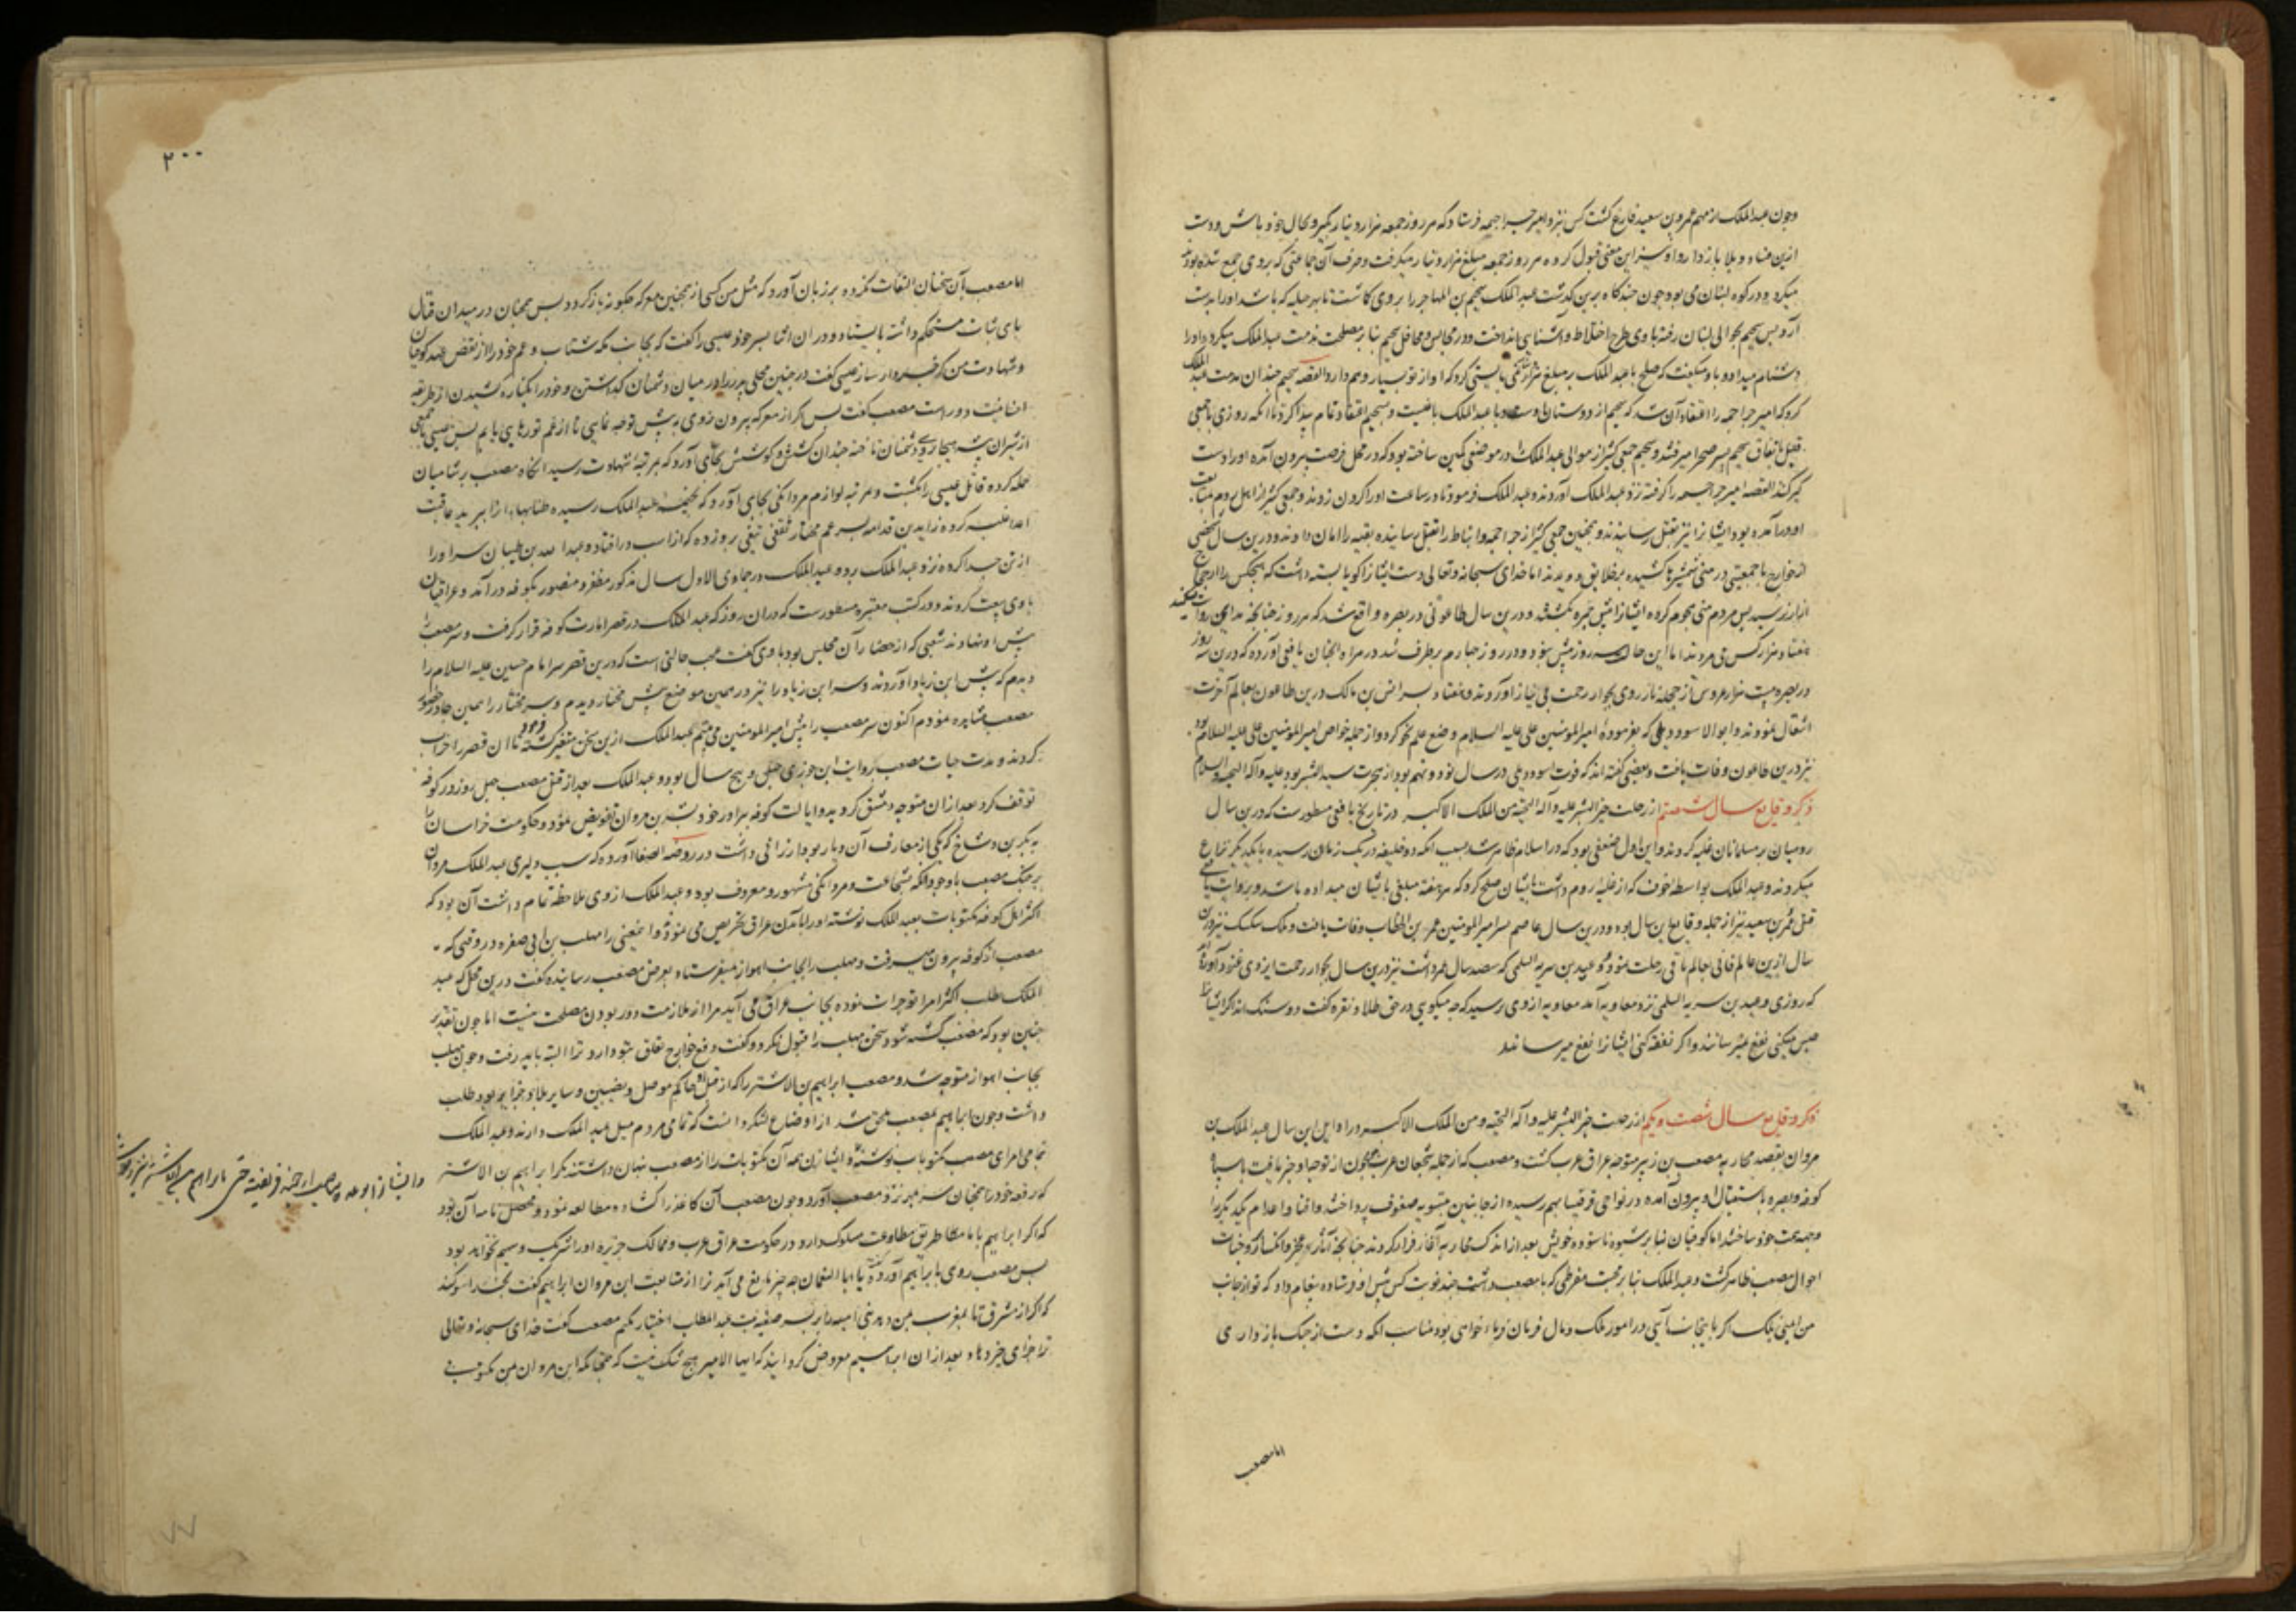 وچون عبدالملک از مهم عمرو بن سعید فارغ گشت کس نزد امیر جراجمه فرستاد که هر روز جمعه هزار دینار بگیر و بحال خود باش و دست
ازین فساد و بلا بازدار و او نیز این معنی قبول کرده هر روز جمعه مبلغ هزار دینار میگرفت و صرف آن جماعتی که بروی جمع شده بودند
میکرد و در کوه لبنان می بود چون چندگاه برین گذشت عبدالملک سحیم بن المهاجر را بروی گماشت تا بهر حیله که باشد او را بدست
آرد پس سحیم بحوالی لبنان رفته با وی طرح اختلاط و آشنایی انداخت و در مجالس و محافل سحیم بنا بر مصلحت مذمت عبدالملک میکرد و او را
دشنام میداد و با او میگفت که صلح با عبدالملک بر مبلغ هزار دینار نمی بایستی کرد که او از تو بسیار وهم دارد القصه سحیم چندان مذمت عبدالملک
کرد که امیر جراجمه را اعتقاد آن شد که سحیم از دوستان اوست و با عبدالملک یاغیست و بسحیم اعتقاد تمام پیدا کرد تا آنکه روزی با جمعی
قلیل باتفاق سحیم بسیر صحرا میرفتند و سحیم جمعی کثیر از موالی عبدالملک را در موضعی کمین ساخته بود که در محل فرصت بیرون آمده او را دست
گیر کنند القصه امیر جراجمه را گرفته نزد عبدالملک آوردند و عبدالملک فرمود تا در ساعت او را گردن زدند و جمعی کثیر از اهل روم متابعت
او در آمده بود ایشانرا نیز بقتل رسانیدند و همچنین جمعی کثیر از جراجمه و انباط را بقتل رسانیده بقیه را امان دادند و درین سال شخصی
از خوارج با جمعیتی در منی شمشیرها کشیده بر خلایق دویدند اما خدای سبحانه و تعالی دست ایشانرا گویا بسته داشت که هیچکس را از حجاج
ازار نرسید پس مردم منی هجوم کرده ایشانرا پیش جمره بکشتند و درین سال طاعونی در بصره واقع شد که هر روز چنانچه مداینی روایت میکند
هفتاد هزار کس می مردند اما این حال سه روز بیش نبود و در روز چهارم برطرف شد در مراة الجنان یافعی آورده که درین سه روز
در بصره بیست هزار عروس از حجله ناز روی بجوار رحمت بی نیاز آوردند و هفتاد پسر انس بن مالک درین طاعون بعالم آخرت
انتقال نمودند و ابو الاسود دیلی که بفرموده امیرالمومنین علی علیه السلام وضع علم نحو کرد و از جمله خواص امیرالمومنین علی علیه السلام بود
نیز درین طاعون وفات یافت و بعضی گفته اند که فوت ابو اسود دیلی در سال نود و نهم بود از هجرت سید البشر بود علیه و آله التحیه و السلام
ذکر وقایع سال شصتم از رحلت خیر البشر علیه و آله التحیة من الملک الاکبر در تاریخ یافعی مسطورست که درین سال
رومیان بر مسلمانان غلبه کردند و این اول ضعفی بود که در اسلام ظاهر شد بسبب آنکه دو خلیفه در یک زمان رسیده با یکدیگر نزاع
میکردند و عبدالملک بواسطه خوف که از غلبه روم داشت با ایشان صلح کرد که هر هفته مبلغی بایشان میداده باشد و بروایت یافعی
قتل عمرو بن سعید نیز از جمله وقایع این سال بود و درین سال عاصم پسر امیرالمومنین عمر بن الخطاب وفات یافت و ملک سکسک نیز درین
سال ازین عالم فانی بعالم باقی رحلت نمود و عبید بن سریه السلمی که سصد سال عمر داشت نیز درین سال بجوار رحمت ایزدی غنود آورده اند
که روزی عبید بن سریه السلمی نزد معاویه آمد معاویه از وی پرسید که چه میگویی در حق طلا و نقره گفت دو سنگ اند اگر ایشانرا
حبس میکنی نفع نمیرسانند و اگر نفقه کنی ایشانرا نفع میرسانند
ذکر وقایع سال شصت و یکم از رحلت خیر البشر علیه و آله التحیة و من الملک الاکبر در اوایل این سال عبدالملک بن
مروان بقصد محاربه مصعب بن زبیر متوجه عراق عرب گشت و مصعب که از جمله شجعان عرب بود چون از توجه او خبر یافت با سپاه
کوفه و بصره باستقبال او بیرون آمده در نواحی قرقیسا بهم رسیده از جانبین بتسویه صفوف پرداختند و افنا و اعدام یکدیگر را
وجهه همت خود ساختند اما کوفیان بنا بر شیوه ناستوده خویش بعد از اندک محاربه آغاز فرار کردند چنانچه آثار عجز و انکسار بر وجنات
احوال مصعب ظاهر گشت و عبدالملک بنا بر محبت مفرطی که با مصعب داشت چند نوبت کس پیش او فرستاده پیغام داد که تو از جانب
من ایمنی بلک اگر باینجانب آیی در امور ملک و مال فرمان فرما خواهی بود مناسب آنکه دست از جنگ بازداری
اما مصعب
۲۰۰
اما مصعب بآن سخنان التفات نکرده بر زبان آورد که مثل من کسی از همچنین معرکه چگونه بازگردد پس همچنان در میدان قتال
پای ثبات مستحکم داشته بایستاد و در آن اثنا پسر خود عیسی را گفت که بجانب مکه شتاب و عم خود را از نقض عهد کوفیان
و شهادت من خبردار ساز عیسی گفت در چنین محلی پدر را در میان دشمنان گذاشتن و خود را بکناره کشیدن از طریقه
انسانیت دورست مصعب گفت پس اگر از معرکه بیرون نروی پیش توجه نمایی تا از غم تو رهایی یابم پس عیسی با جمعی
از شیران بیشه هیجا روی بدشمنان تاخته چندان کشش و کوشش بجای آورد که بمرتبه شهادت رسید آنگاه مصعب بر شامیان
حمله کرده قاتل عیسی را بکشت و مرتبه لوازم مردانگی بجای آورد که بخیمه عبدالملک رسیده طنابها را ببرید عاقبت
اعدا غلبه کرده زاید بن قدامه پسر عم مختار ثقفی تیغی برو زده که از اسب درافتاد و عبدالله بن ظبیان سر او را
از تن جدا کرده نزد عبدالملک برد و عبدالملک در جمادی الاول سال مذکور مظفر و منصور بکوفه درآمد و عراقیان
با وی بیعت کردند و در کتب معتبره مسطورست که در آن روز که عبدالملک در قصر امارت کوفه قرار گرفت و سر مصعب را
پیش او نهادند شعبی که از حضار آن مجلس بود با وی گفت عجب حالتی است که درین قصر سر امام حسین علیه السلام را
دیدم که پیش ابن زیاد آوردند و سر ابن زیاد را نیز در همین موضع پیش مختار دیدم و سر مختار را همین جا در حضور
مصعب مشاهده نمودم اکنون سر مصعب را پیش امیرالمومنین می بینم عبدالملک ازین سخن متغیر گشته فرمود تا آن قصر را خراب
کردند و مدت حیات مصعب بروایت ابن جوزی چهل و پنج سال بود و عبدالملک بعد از قتل مصعب چهل روز در کوفه
توقف کرد بعد از آن متوجه دمشق گردید و ایالت کوفه ببرادر خود بشر بن مروان تفویض نمود و حکومت خراسان را
به بکر بن وشاح که یکی از معارف آن دیار بود ارزانی داشت در روضة الصفا آورده که سبب دلیری عبدالملک مروان
بر جنگ مصعب با وجود آنکه بشجاعت و مردانگی مشهور و معروف بود و عبدالملک از وی ملاحظه تمام داشت آن بود که
اکثر اهل کوفه مکتوبات بعبدالملک نوشته او را بآمدن عراق تحریص می نمودند و این معنی را مهلب بن ابی صفره در وقتی که
مصعب از کوفه بیرون میرفت و مهلب را بجانب اهواز میفرستاد بعرض مصعب رسانیده گفت درین محل که عبد
الملک بطلب اکثر امرا توجه نموده بجانب عراق می آید مرا از ملازمت دور بودن مصلحت نیست اما چون تقدیر
چنین بود که مصعب کشته شود سخن مهلب را قبول نکرد و گفت دفع خوارج تعلق بتو دارد ترا البته باید رفت و چون مهلب
بجانب اهواز متوجه شد و مصعب ابراهیم بن الاشتر را که از قبل او حاکم موصل و نصیبین و سایر بلاد جزایر بود طلب
داشت و چون ابراهیم بمصعب ملحق شد از اوضاع لشکر دانست که تمامی مردم میل عبدالملک دارند و عبدالملک
تمامی امرای مصعب مکتوبات نوشته و ایشان همه آن مکتوبات را از مصعب پنهان داشتند مگر ابراهیم بن الاشتر
که رقعه خود را همچنان سر بمهر نزد مصعب آورد و چون مصعب آن کاغذ را گشاده مطالعه نمود و محصل نامه آن بود
که اگر ابراهیم با ما طریق مطاوعت مسلوک دارد در حکومت عراق عرب و ممالک جزیره او را شریک و سهیم خواهد بود
پس مصعب روی بابراهیم آورده گفت یا ابا النعمان چه چیز مانع می آید ترا از متابعت ابن مروان ابراهیم گفت بخدا سوگند
که اگر از مشرق تا بمغرب بمن دهد بنی امیه را بر پسر صفیه بنت عبدالمطلب اختیار نکنم مصعب گفت خدای سبحانه و تعالی
ترا جزای خیر دهاد بعد از آن ابراهیم معروض گردانید که ایها الامیر هیچ شک نیست که همچنانکه ابن مروان بمن مکتوب
و ایشانرا بوعده فریفته حتی بابراهیم بن الاشتر نیز
۷۷